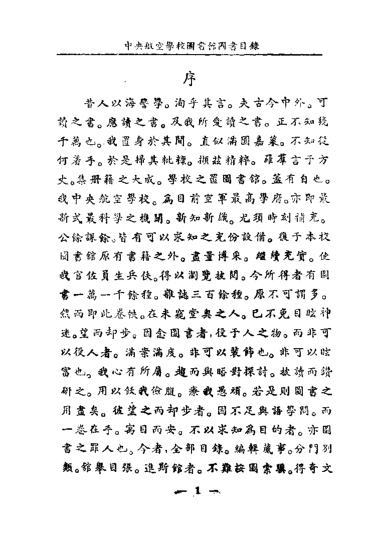 中央航空學校圖書館圖書目錄
序
昔人以海譬學。洵乎其言。夫古今中外。可
讀之書。應讀之書。及我所愛讀之書。正不知幾
千萬也。我置身於其間。直似滿園嘉菓。不知從
何着手。於是掃其秕糠。擷茲精粹。羅羣言于方
丈。集册籍之大成。學校之置圖書館。蓋有自也。
我中央航空學校。爲目前空軍最高學府。亦即最
新式最科學之機關。新知新識。尤須時刻補充。
公餘課餘。皆有可以求知之充份設備。復于本校
圖書館原有書籍之外。盡量博采。繼續充實。使
我官佐員生兵伕。得以瀏覽披閱。今所得者有圖
書一萬一千餘種。雜誌三百餘種。原不可謂多。
然而即此卷帙。在未窺堂奧之人。已不免目眩神
迷。望而却步。因念圖書者。役于人之物。而非可
以役人者。滿架滿度。非可以裝飾也。非可以眩
富也。我心有所屬。趨而與晤對探討。披讀而鑽
研之。用以飫我儉腹。療我愚頑。若是則圖書之
用盡矣。彼望之而却步者。因不足與語學問。而
一卷在手。寓目而安。不以求知爲目的者。亦圖
書之罪人也。今者。全部目錄。編輯蕆事。分門別
類。館舉目張。進斯館者。不難按圖索驥。得奇文
— 1 —